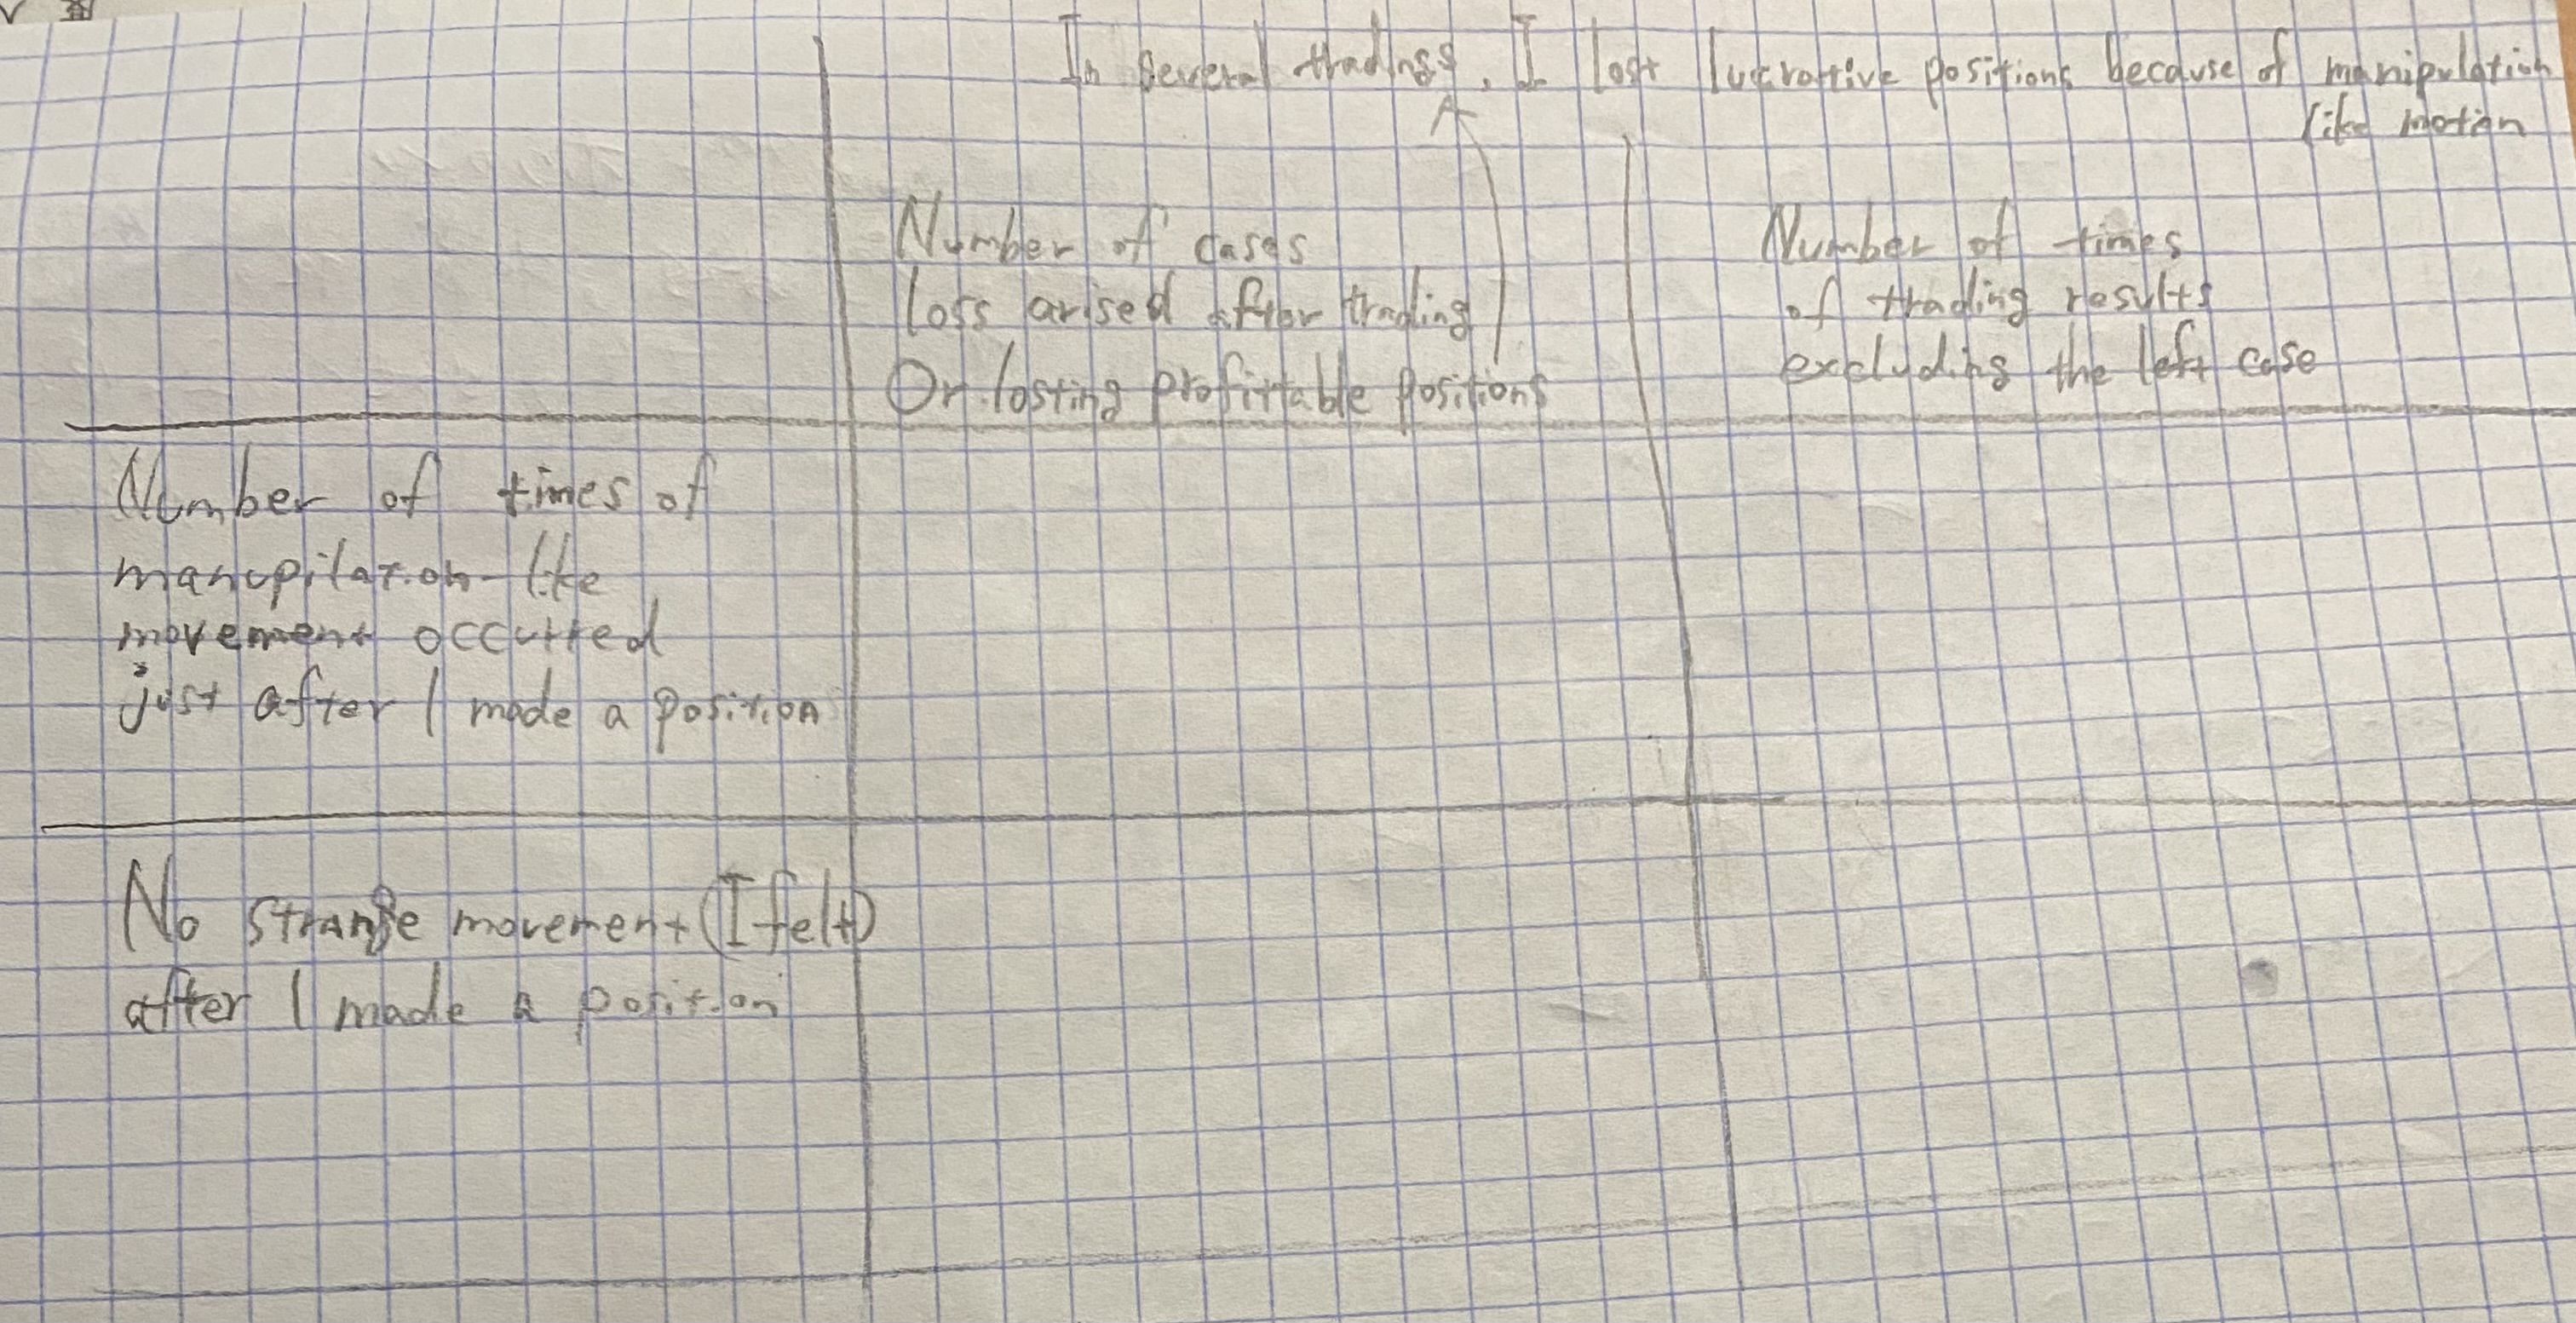 In several tradings, I lost lucrative positions because of manipulation
like motion
Number of cases
loss arised after trading
Or losting profittable positions
Number of times
of trading results
excluding the left case
Number of times of
manupilation-like
movement occurred
just after I made a position
No strange movement (I felt)
after I made a position